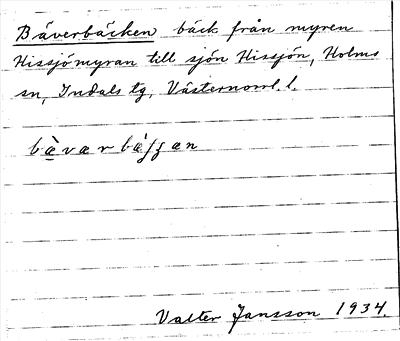 Bäverbäcken bäck från myren
Hissjömyran till sjön Hissjön, Holms
sn, Indals tg, Västernorrl. l.
Valter Jansson 1934.